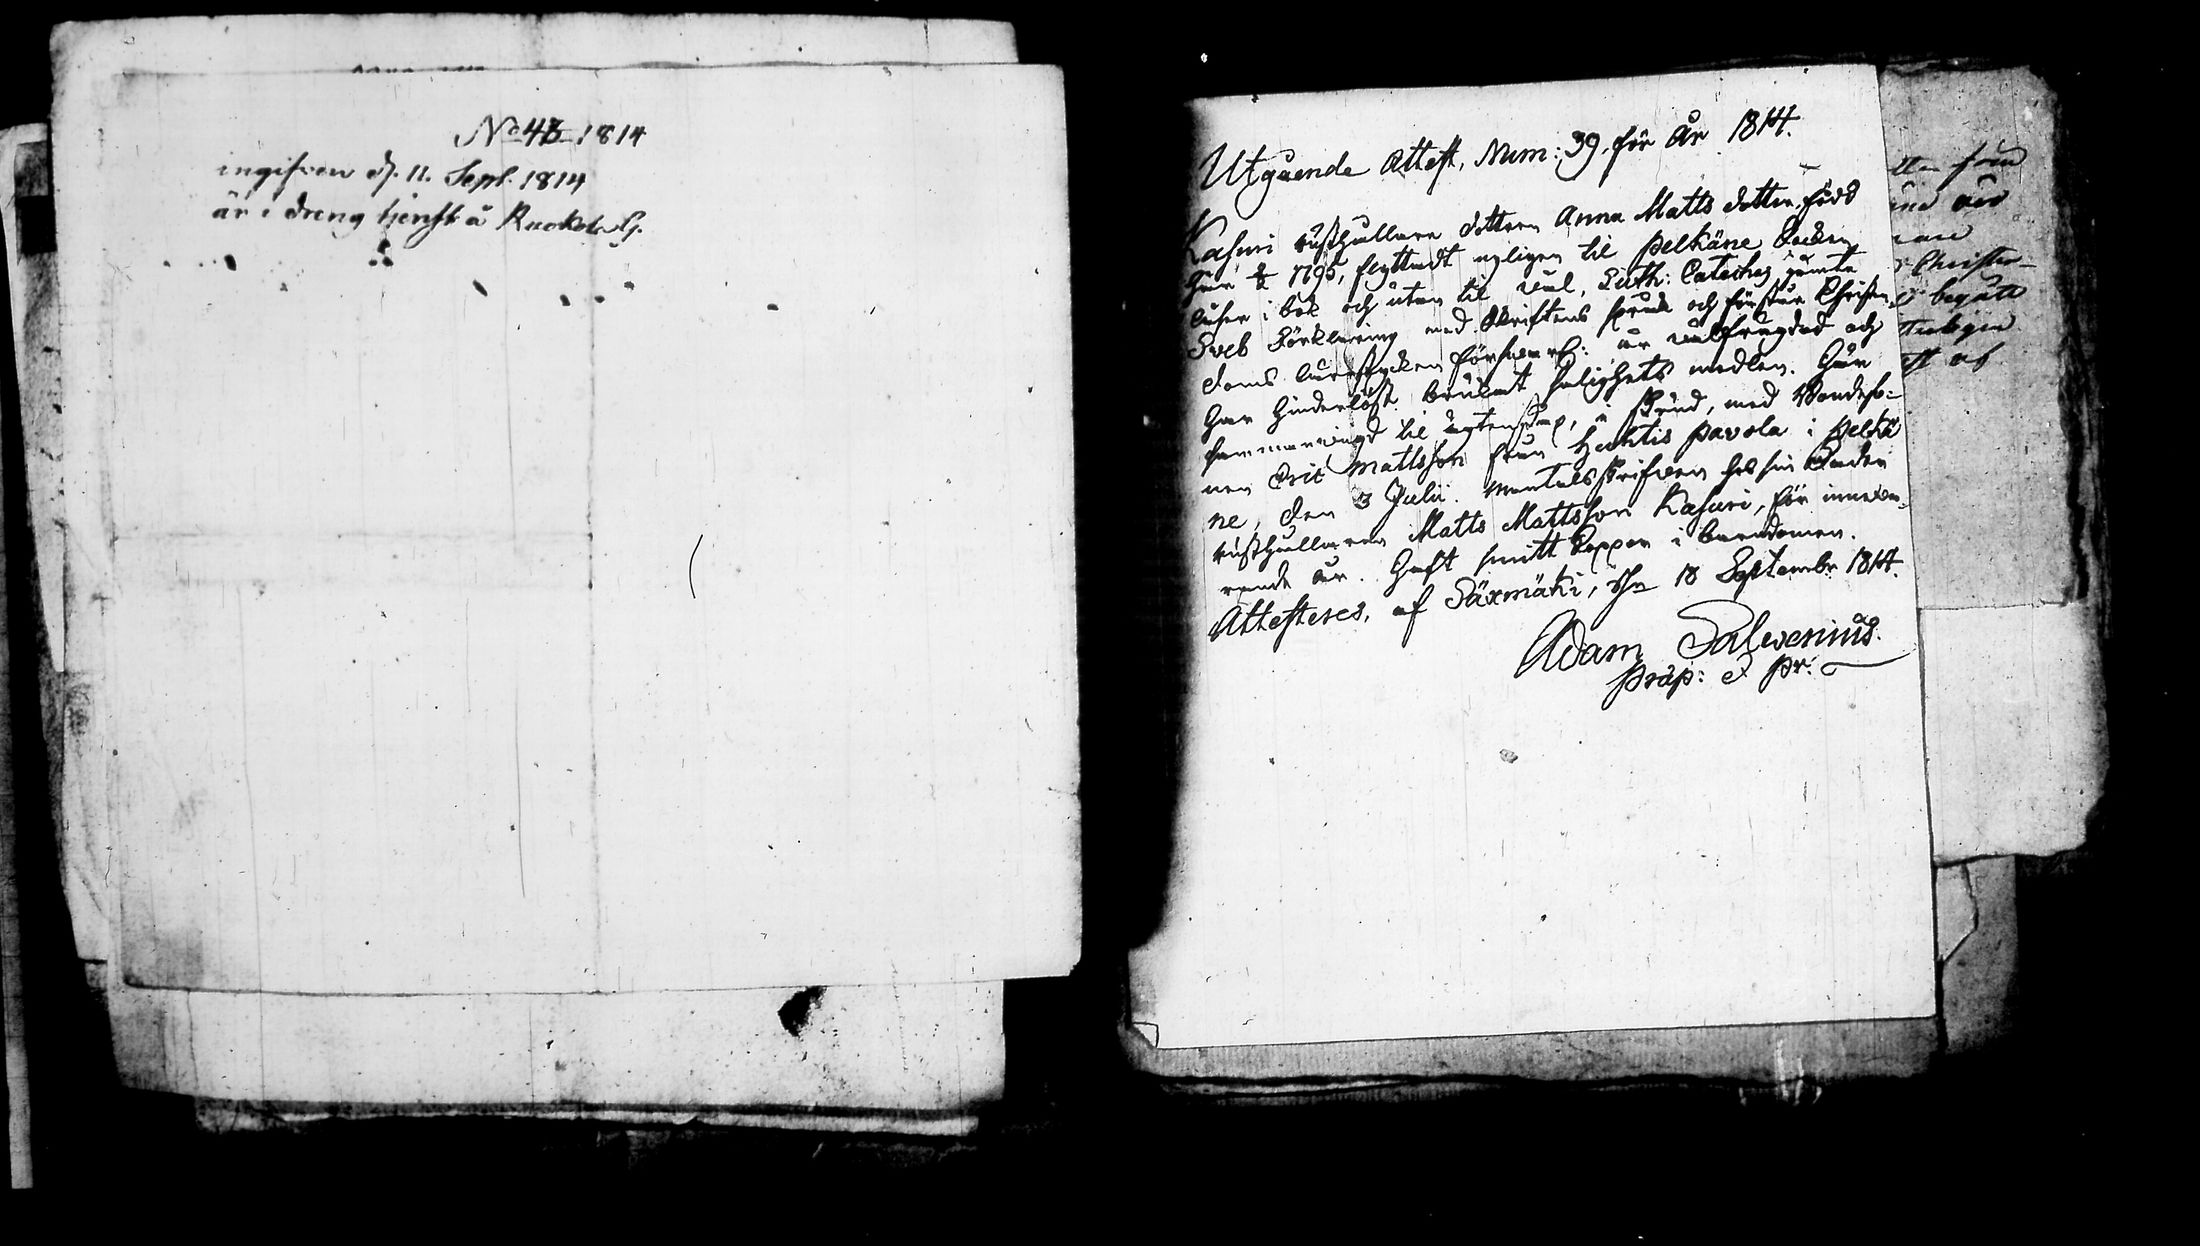 No 43 1814
ingifven d. 11. Sept. 1814
är i dreng tjenst å Ruokola G.
Utgående Attest, Num: 39, för År 1814.
Kasuri rusthållare dottren Anna Matts dotter, född
här 1795, flyttadt nyligen til Pelkäne Socken
läser i bok och utan til väl, Luth: Catechès jämte
Sveb Förklaring med Skriftens språk och förstår Christen-
doms lärostycken försvarl: är välfrägdad och
har hinderlöst brukat salighets medlen. Här
sammanvigd til ägtenskap, i stånd, med Bondeso-
nen Eric Mattsson från Huhtis Pavola i Pelkä
ne, den 3 Julii. Mantalsskrifven hos sin Fader
rusthållaren Matts Mattsson Kasuri, för inneva-
rande år. Haft smitt koppor i barndomen.
Attesteres, af Säxmäki, d. 18 September 1814.
Adam Salvenius.
Präp: & Pr: